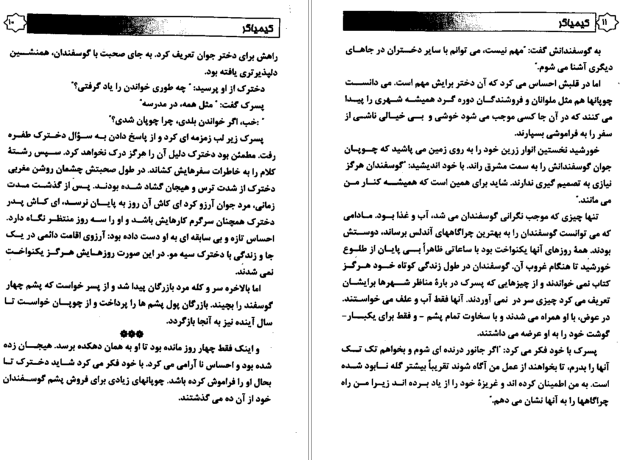 ۱۰
کیمیاگر
راهش برای دختر جوان تعریف کرد. به جای صحبت با گوسفندان، همنشسین
دلپذیرتری یافته بود.
دخترک از او پرسید: " چه طوری خواندن را یاد گرفتی؟"
پسرک گفت: " مثل همه، در مدرسه"
"خب، اگر خواندن بلدی، چرا چوپان شدی؟"
پسرک زیر لب زمزمه ای کرد و از پاسخ دادن به سؤال دخترک طفره
رفت. مطمئن بود دخترک دلیل آن را هرگز درک نخواهد کرد. سپس رشتهٔ
کلام را به خاطرات سفرهایش کشاند. در طول صحبتش چشمان روشن مغربی
دخترک از شدت ترس و هیجان گشاد شده بودند. پس از گذشت مدت
زمانی، مرد جوان آرزو کرد ای کاش آن روز به پایان نرسد، ای کاش پدر
دخترک همچنان سرگرم کارهایش باشد و او را سه روز منتظر نگاه دارد.
احساس تازه و بی سابقه ای به او دست داده بود: آرزوی اقامت دائمی در یک
جا و زندگی با دخترک سیه مو. در این صورت روزهایش هرگز یکنواخت
نمی شدند.
اما بالاخره سر و کله مرد بازرگان پیدا شد و از پسر خواست که پشم چهار
گوسفند را بچیند. بازرگان پول پشم ها را پرداخت و از چوپان خواست تا
سال آینده نیز به آنجا بازگردد.
***
و اینک فقط چهار روز مانده بود تا او به همان دهکده برسد. هیجان زده
شده بود و احساس نا آرامی می کرد. با خود فکر می کرد شاید دخترک تا
بحال او را فراموش کرده باشد. چوپانهای زیادی برای فروش پشم گوسفندان
خود از آن ده می گذشتند.
کیمیاگر
۱۱
به گوسفندانش گفت: "مهم نیست، می توانم با سایر دختران در جاهای
دیگری آشنا می شوم."
اما در قلبش احساس می کرد که آن دختر برایش مهم است. می دانست
چوپانها هم مثل ملوانان و فروشندگان دوره گرد همیشه شهری را پیدا
می کنند که در آن جا کسی موجب می شود خوشی و بی خیالی ناشی از
سفر را به فراموشی بسپارند.
خورشید نخستین انوار زرین خود را به روی زمین می پاشید که چوپان
جوان گوسفندانش را به سمت مشرق راند. با خود اندیشید: "گوسفندان هرگز
نیازی به تصمیم گیری ندارند. شاید برای همین است که همیشه کنار من
می مانند."
تنها چیزی که موجب نگرانی گوسفندان می شد، آب و غذا بود. مادامی
که می توانست گوسفندان را به بهترین چراگاههای آندلس برساند، دوستش
بودند. همهٔ روزهای آنها یکنواخت بود با ساعاتی ظاهراً بی پایان از طلوع
خورشید تا هنگام غروب آن. گوسفندان در طول زندگی کوتاه خود هرگز
کتاب نمی خواندند و از چیزهایی که پسرک در بارهٔ مناظر شهرها برایشان
تعریف می کرد چیزی سر در نمی آوردند. آنها فقط آب و علف می خواستند.
در عوض، با او همراه می شدند و با سخاوت تمام پشم - و فقط برای یکبار-
گوشت خود را به او عرضه می داشتند.
پسرک با خود فکر می کرد: "اگر جانور درنده ای شوم و بخواهم تک تک
آنها را بدرم، تا بخواهند از عمل من آگاه شوند تقریباً بیشتر گله نابود شده
است. به من اطمینان کرده اند و غریزهٔ خود را از یاد برده اند زیرا من راه
چراگاهها را به آنها نشان می دهم."